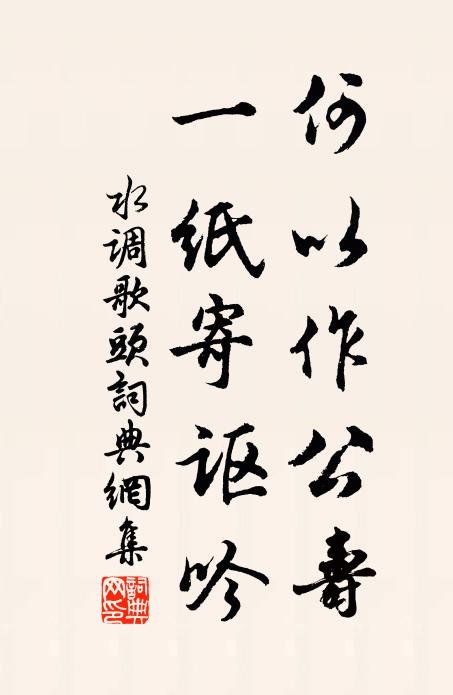 何以作公壽
一紙寄讴吟
水调歌頭詞典網集
詞典网印